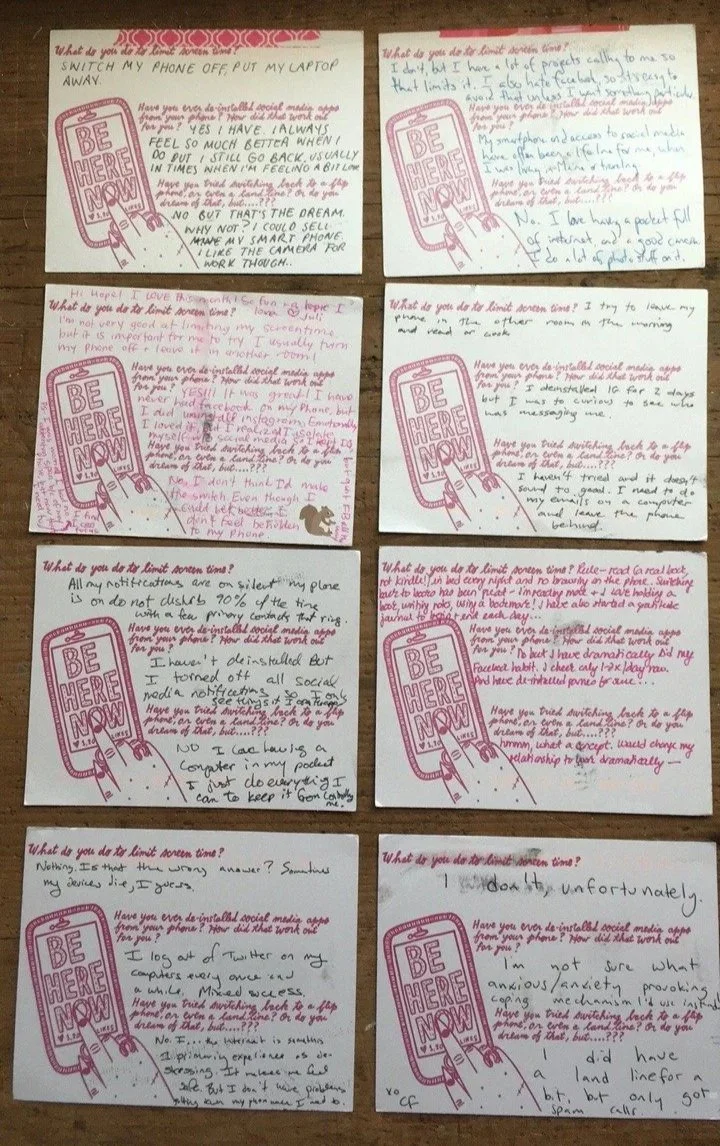 What do you do to limit screen time?
SWITCH MY PHONE OFF, PUT MY LAPTOP
AWAY.
Have you ever de-installed social media apps
from your phone? How did that work out
for you? YES I HAVE. I ALWAYS
FEEL SO MUCH BETTER WHEN I
DO BUT I STILL GO BACK. USUALLY
IN TIMES WHEN I'M FEELING A BIT LOW
Have you tried switching back to a flip
phone, or even a land line? Or do you
dream of that, but....???
NO BUT THAT'S THE DREAM.
WHY NOT? I COULD SELL
MY SMART PHONE.
I LIKE THE CAMERA FOR
WORK THOUGH..
BE
HERE
NOW
LIKES
What do you do to limit screen time?
I don't, but I have a lot of projects calling to me so
that limits it. I also hate facebook, so it's easy to
avoid that unless I want something particular.
Have you ever de-installed social media apps
from your phone? How did that work out
for you?
My smartphone and access to social media
have often been a life line for me, when
I was living in Maine + traveling
Have you tried switching back to a flip
phone, or even a land line? Or do you
dream of that, but....???
No. I love having a pocket full
of internet, and a good camera
I do a lot of photo stuff on it.
BE
HERE
NOW
LIKES
Hi Hope! I LOVE this month! So fun + a topic I
love Juli
What do you do to limit screen time?
I'm not very good at limiting my screentime
but it is important for me to try. I usually turn
my phone off + leave it in another room!
Have you ever de-installed social media apps
from your phone? How did that work out
for you? YES!!! It was great! I have
never had Facebook on my phone, but
I did Instagram. Emotionally
I loved it but I realized I isolate
myself social media so I kept IG
Have you tried switching back to a flip
phone, or even a land line? Or do you
dream of that, but....???
No, I don't think I'd make
the switch. Even though I
could I
don't feel beholden
to my phone
BE
HERE
NOW
LIKES
What do you do to limit screen time? I try to leave my
phone in the other room in the morning
and read or cook
Have you ever de-installed social media apps
from your phone? How did that work out
for you? I deinstalled IG for 2 days
but I was to curious to see who
was messaging me.
Have you tried switching back to a flip
phone, or even a land line? Or do you
dream of that, but....???
I haven't tried and it doesn't
sound to good. I need to do
my emails on a computer
and leave the phone
behind.
BE
HERE
NOW
LIKES
What do you do to limit screen time?
All my notifications are on silent my phone
is on do not disturb 90% of the time
with a few primary contacts that ring.
Have you ever de-installed social media apps
from your phone? How did that work out
for you?
I haven't deinstalled But
I turned off all social
media notifications so I only
see things if I
Have you tried switching back to a flip
phone, or even a land line? Or do you
dream of that, but....???
NO I love having a
computer in my pocket
I just do everything I
can to keep it from controlling
me.
BE
HERE
NOW
LIKES
What do you do to limit screen time? Rule - read (a real book,
not kindle!) in bed every night and no browsing on the phone. Switching
back to books has been great - I'm reading more + I love holding a
book, writing notes, using a bookmark! I have also started a gratitude
journal to begin + end each day...
Have you ever de-installed social media apps
from your phone? How did that work out
for you? No but I have dramatically
Facebook habit. I check only 1-2x/day now.
And have de-installed games for sure...
Have you tried switching back to a flip
phone, or even a land line? Or do you
dream of that, but....???
hmmm, what a concept. Would change my
relationship to dramatically —
BE
HERE
NOW
LIKES
What do you do to limit screen time?
Nothing. Is that the wrong answer? Sometimes
my devices die, I guess.
Have you ever de-installed social media apps
from your phone? How did that work out
for you?
I log out of Twitter on my
computers every once and
a while, Mixed success.
Have you tried switching back to a flip
phone, or even a land line? Or do you
dream of that, but....???
No. I... the internet is something
I primarily experience as de-
stressing. It makes me feel
safe. But I don't have problems
putting down my phone when I need to.
BE
HERE
NOW
LIKES
What do you do to limit screen time?
I don't, unfortunately.
Have you ever de-installed social media apps
from your phone? How did that work out
for you?
I'm not sure what
anxious/anxiety provoking
coping mechanism I'd use instead
Have you tried switching back to a flip
phone, or even a land line? Or do you
dream of that, but....???
I did have
a land line for a
bit, but only got
spam calls.
xo
CF
BE
HERE
NOW
LIKES